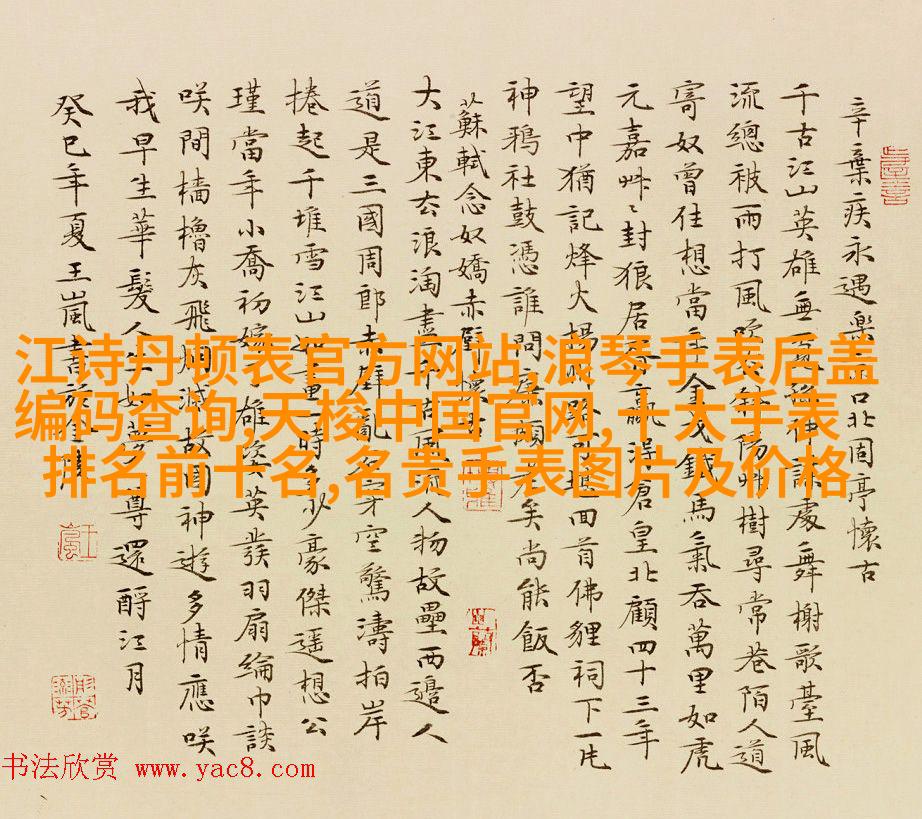 辛棄疾永遇樂京口北固亭懷古
千古江山英雄無覓孫仲謀處舞榭歌臺風
流總被雨打風吹去斜陽艸樹尋常巷陌人道
寄奴曾住想當年金戈鐵馬氣吞萬里如虎
元嘉艸艸封狼居胥贏得倉皇北顧四十三年
望中猶記烽火揚州路可堪回首佛貍祠下一片
神鴉社鼓憑誰問廉頗老矣尚能飯否
蘇軾念奴嬌赤壁懷古
大江東去浪淘盡千古風流人物故壘西邊人
道是三國周郎赤壁亂石穿空驚濤拍岸
捲起千堆雪江山如畫一時多少豪傑遥想公
瑾當年小喬初嫁了雄姿英發羽扇綸巾談
咲間檣櫓灰飛煙滅故國神遊多情應咲
我早生華髮人生如夢一尊還酹江月
癸巳年夏王嵐書於金陵
江诗丹顿表官方网站,浪琴手表后盖
编码查询,天梭中国官网,十大手表
排名前十名,名贵手表图片及价格
书法欣赏 www.yac8.com